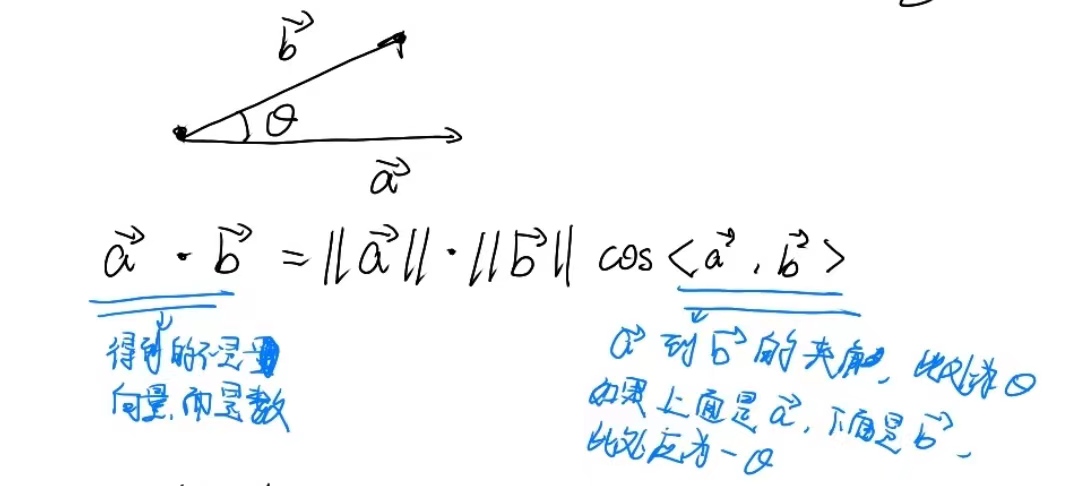 b⃗
θ
a⃗
a⃗ · b⃗ = ||a⃗|| · ||b⃗|| cos<a⃗, b⃗>
得到的不是
向量,而是数
a⃗到b⃗的夹角,此处为θ
如果上面是a⃗,下面是b⃗,
此处应为-θ